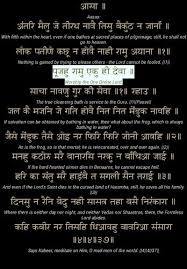 आसा ॥
Aasaa:
अंतरि मैलु जे तीरथ नावै तिसु बैकुंठ न जानां ॥
With filth within the heart, even if one bathes at sacred places of pilgrimage, still, he shall not go to heaven.
लोक पतीणे कछू न होवै नाही रामु अयाना ॥१॥
Nothing is gained by trying to please others - the Lord cannot be fooled. ||1||
पूजहु रामु एकु ही देवा ॥
Worship the One Divine Lord.
साचा नावणु गुर की सेवा ॥१॥ रहाउ ॥
The true cleansing bath is service to the Guru. ||1||Pause||
जल कै मजनि जे गति होवै नित नित मेंडुक नावहि ॥
If salvation can be obtained by bathing in water, then what about the frog, which is always bathing in water?
जैसे मेंडुक तैसे ओइ नर फिरि फिरि जोनी आवहि ॥२॥
As is the frog, so is that mortal; he is reincarnated, over and over again. ||2||
मनहु कठोरु मरै बानारसि नरकु न बांचिआ जाई ॥
If the hard-hearted sinner dies in Benaares, he cannot escape hell.
हरि का संतु मरै हाड़ंबै त सगली सैन तराई ॥३॥
And even if the Lord's Saint dies in the cursed land of Haramba, still, he saves all his family. ||3||
दिनसु न रैनि बेदु नही सासत्र तहा बसै निरंकारा ॥
Where there is neither day nor night, and neither Vedas nor Shaastras, there, the Formless Lord abides.
कहि कबीर नर तिसहि धिआवहु बावरिआ संसारा ॥४॥४॥३७॥
Says Kabeer, meditate on Him, O mad-men of the world. ||4||4||37||